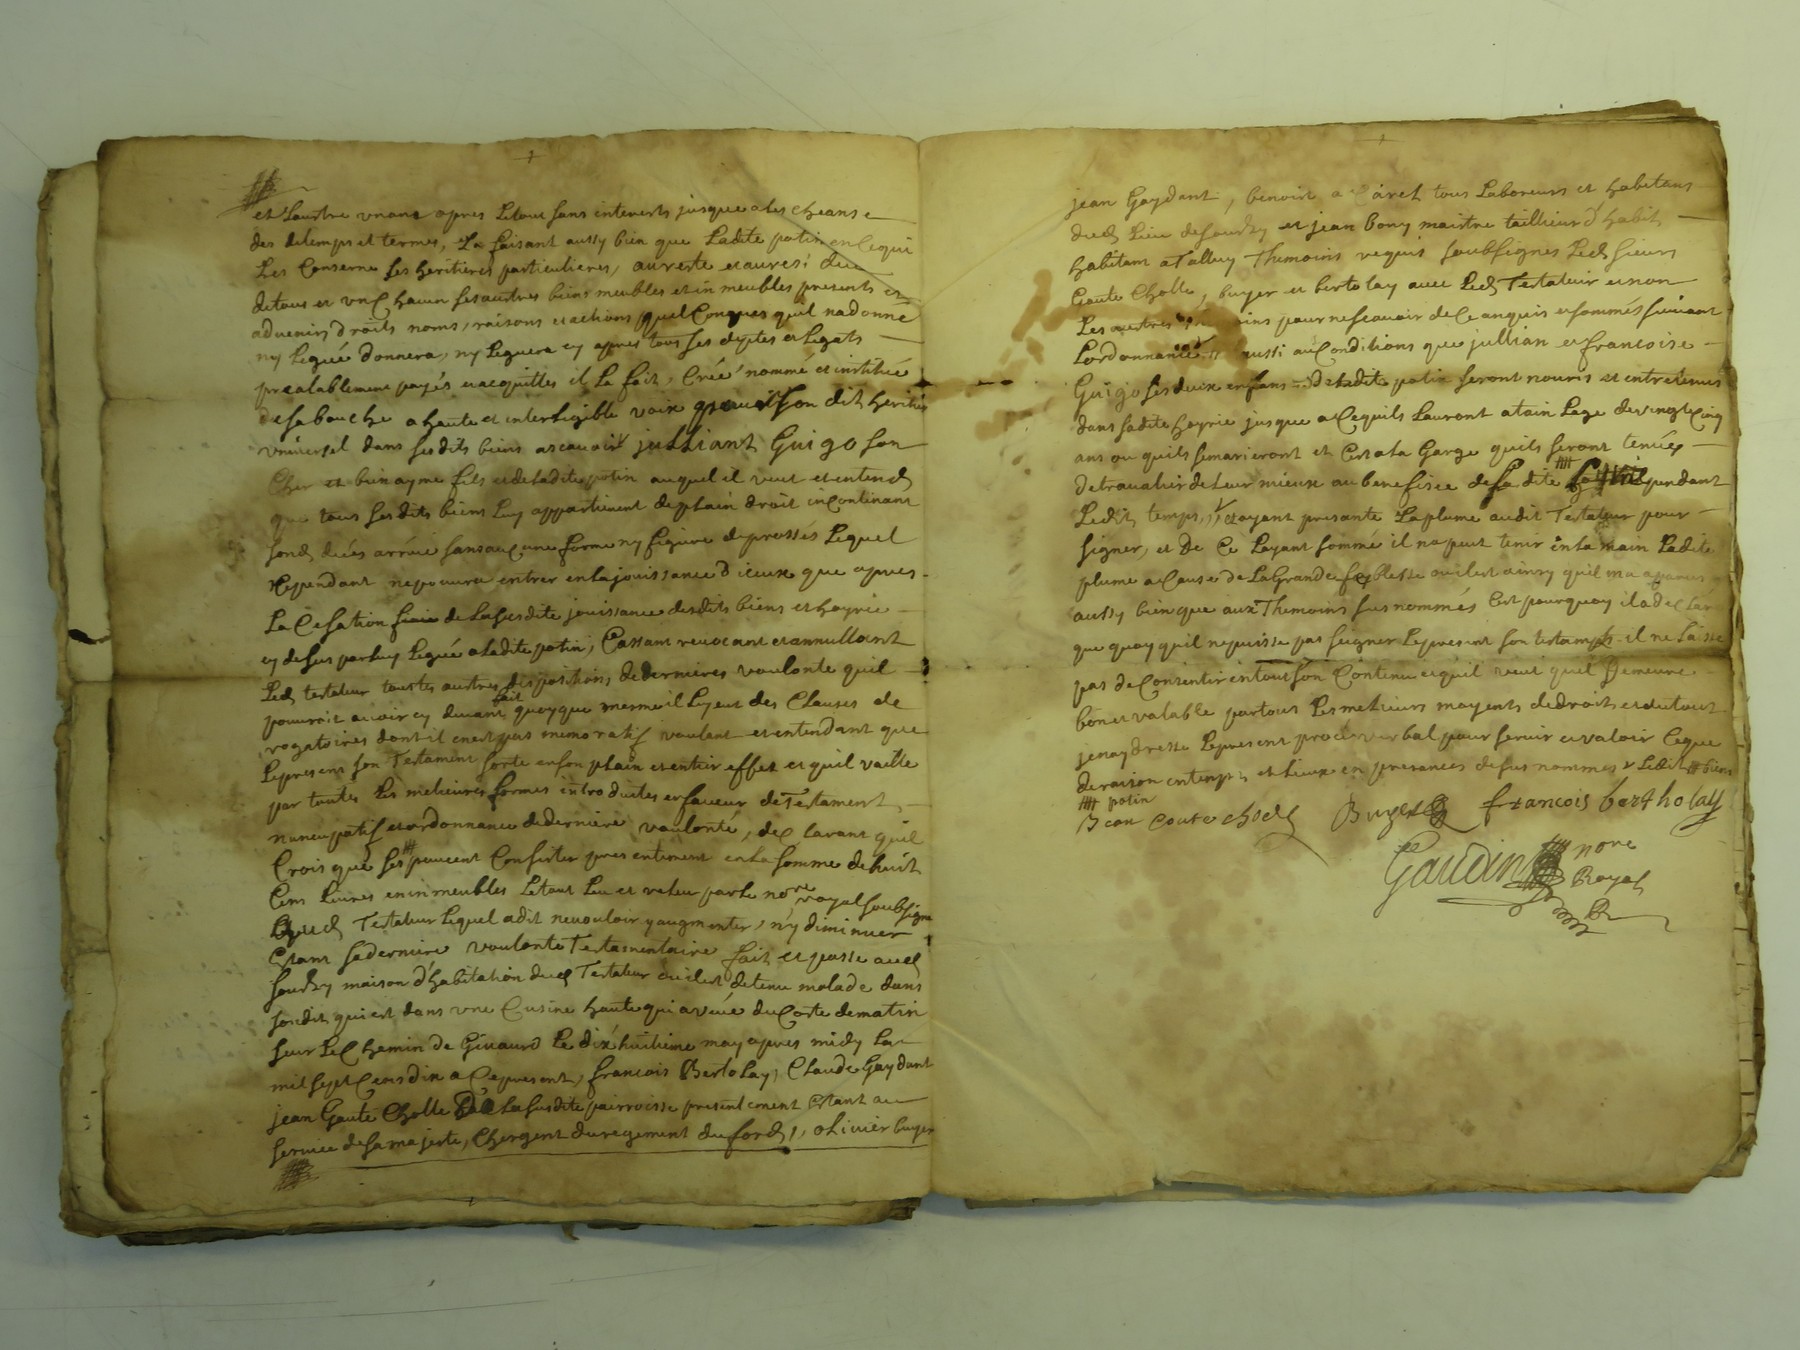 et Lauttre unant apres Letout sans interests jusque ales cheanse
des ditemps et termes, La faisant aussy bien que Ladite patin en Cequi
Les Conserne ses heritieres particulieres, au reste et au resi du
detous et un Chacun ses auttres biens meubles et in meubles presents et
advenirs droits noms, raisons et actions quel Conques quil na donné
ny Legué donnera, ny Leguera cy apres tous ses deptes et Legats
prealablement payés et acquittes il La fait, Créé nommé et institué
de sa bouche a haute et intertigible voix son dit heritier
universel dans ses dits biens ascavoir julliant Guigo son
Cher et bien ayme fils et de Ladite patin auquel il veut et entend
que tous ses dits biens Luy appartienent de plain droit incontinant
sond decés arrivé sans aucune forme ny figure de prossés Lequel
Cependant ne pouvra entrer en La jouissance d'iceux que apres
La Cesation de La susdite jouissance desdits biens et hoyrie
cy desus par Luy Legué a Ladite patin, Cassant revocant et annullant
Led testateur touttes auttres dispositions de dernieres voulonte quil
pouvroit avoir cy devant fait quoyque mesme il y eut des Clauses de
rogatoires dont il enest pas memoratif voulant et entendant que
Lepresent son Testament sorte enson plain et entier effet et quil vaille
par toutes Les melieures formes introduites en faveur de Testament
nuncupatif et ordonnance de derniere voulonté, declarant quil
Crois que ses peuvent Consister presentement en La somme de huit
Cens Livres en in meubles Letout Leu et releu par Le nore royal soubsigné
aud Testateur Lequel a dit ne vouloir y augmenter, n'y diminuer
Estant sa derniere voulonte Testamentaire fait et passe aud
Sourzy maison d'habitation dud Testateur ou il est detenu malade dans
son dit qui est dans une Cusine haute qui a veüe du Coste de matin
sur Le Chemin de Givaurd Le dix huitieme may apres midy Lan
mil sept Cens dix a Ce presents, francois Bertolay, Claude Gaydant
jean Gaute Cholle de La susdite pairroisse presentement Estant au
service de sa majeste, Chergent du regement du ford, olivier buyer
jean Gaydant, benoist a Caret tous Laboreurs et habitans
dud Lieu de Sourzy et jean bony maistre taillieur d'habit
habitant a Talluy Themoins requis soubsignes Led sieurs
Gaute Cholle, buyer et bertolay avec Led Testateur et non
Les auttres pour ne scavoir de Ce anquis et sommés suivant
Lordonnance aussi au Conditions que jullian et francoise
Guigo ses deux enfans et de Ladite patin seront nouris et entretenus
dans sa dite hoyrie jusque a Cequils Lauront atain Lage de vingt Cinq
ans ou quils se marieront et Cest a La Garge quils seront tenües
de travalier de Leur mieux au benefisce de Sa dite pendant
Ledit temps, et ayant presante La plume audit Testateur pour
signer, et De Ce Layant sommé il na peut tenir en La main Ladite
plume a Cause de La Grande feblesse ou il est ainsy quil ma aparus
aussy bien que aux Themoins sus nommés Cest pourquoy il a declar
que quoy quil ne puisse pas seigner Le present son testamt il ne Laisse
pas de Consentir en tout son Contenu et quil veut quil Demeure
bon et valable par tous Les melieurs moyents de droit et du tout
jenay dresse Le present proces verbal pour servir et valoir Ceque
de raison en temps et Lieux en presences de sus nommes Ledits biens
patin
Jean Coute choll Buyer francois bartholay
Gaudin nore
Royal